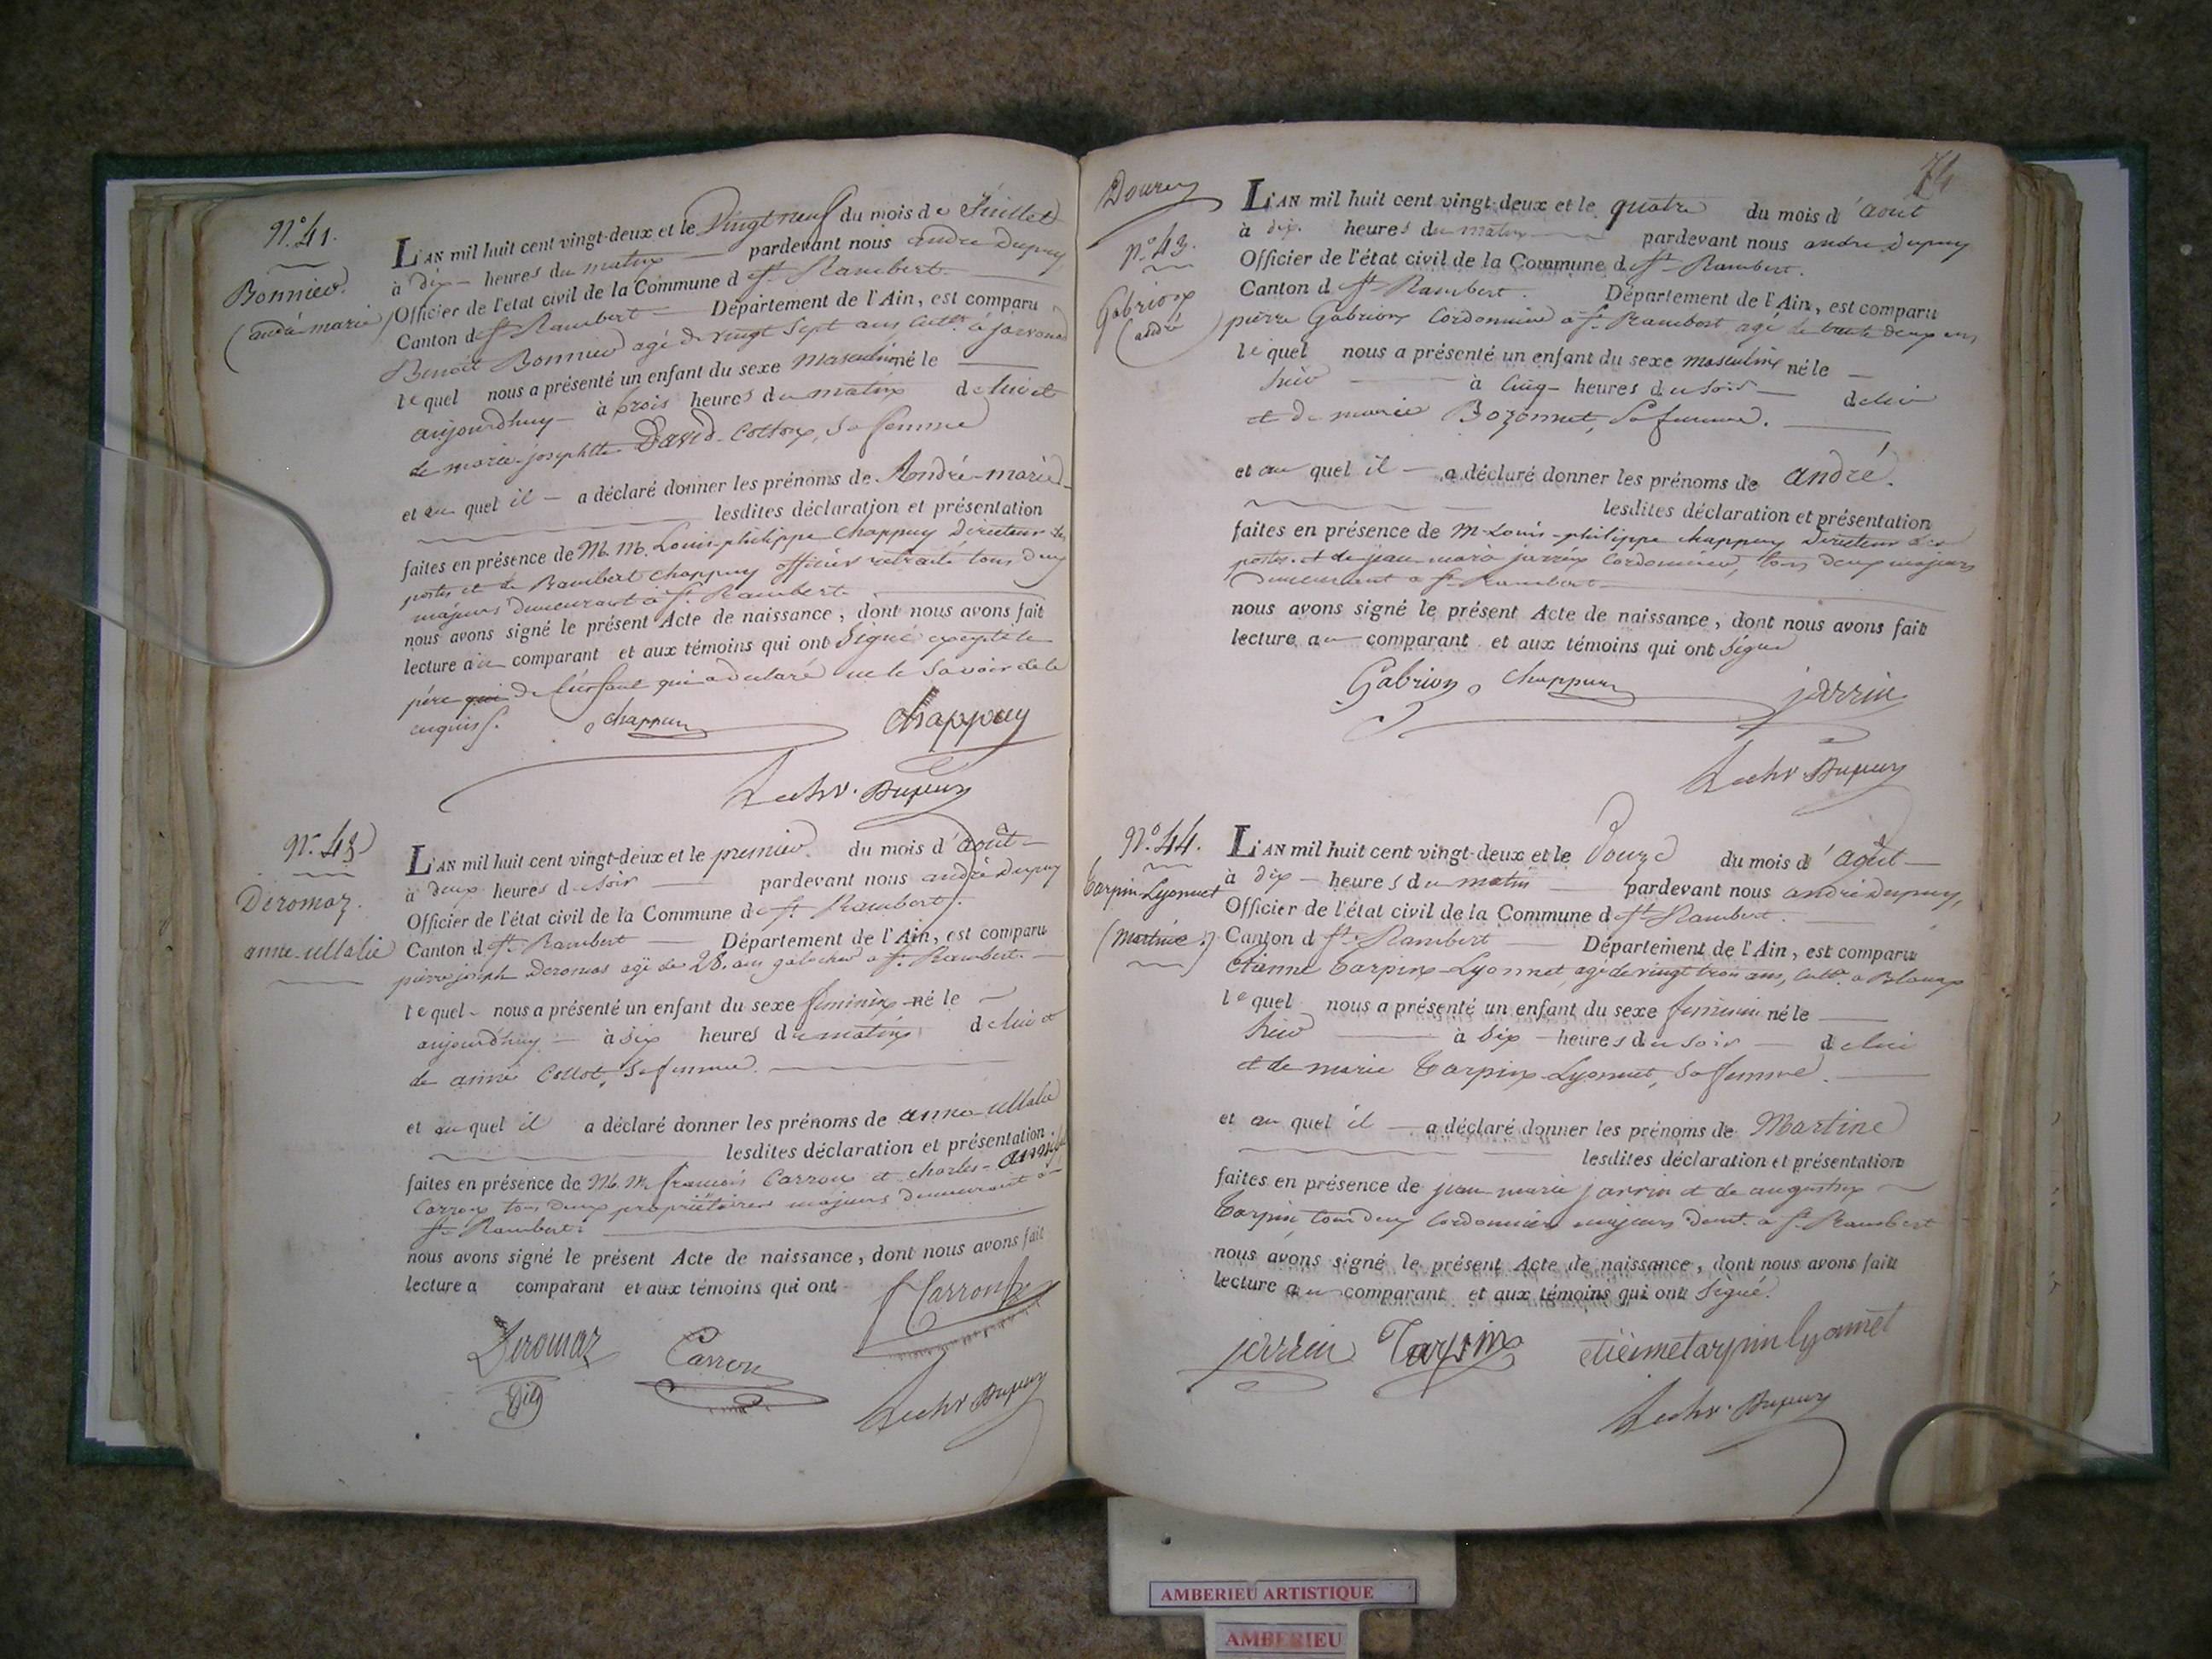 N.° 41.
Bonnier.
(andré-marie)
L'AN mil huit cent vingt-deux et le Vingt neuf du mois de Juillet
à dix — heures du matin — pardevant nous andré Dupuy
Officier de l'état civil de la Commune d St. Rambert.
Canton d St. Rambert — Département de l'Ain, est comparu
Benoit Bonnier agé de vingt sept ans Cultr. à
lequel nous a présenté un enfant du sexe Masculin né le
aujourdhuy — à trois heures du matin de lui et
de marie josephte David-Cotton, sa femme
et au quel il — a déclaré donner les prénoms de André-marie
lesdites déclaration et présentation
faites en présence de M. M. Louis-philippe Chappuy Directeur des
postes et de Rambert Chappuy officier retraité tous deux
majeurs demeurant à St. Rambert
nous avons signé le présent Acte de naissance, dont nous avons fait
lecture au comparant et aux témoins qui ont Signé excepté le
père qui de l'enfant qui a déclaré ne le Savoir de ce
enquis.
chappuy chappuy
Dupuy
N.° 42
Deromaz.
anne-
L'AN mil huit cent vingt-deux et le premier du mois d'août —
à deux heures du soir — pardevant nous andré Dupuy
Officier de l'état civil de la Commune de St. Rambert.
Canton d St. Rambert — Département de l'Ain, est comparu
pierre joseph Deromas agé de 28. ans galocher a St. Rambert.
lequel nous a présenté un enfant du sexe feminin né le
aujourdhuy — à six heures du matin de lui et
de anne Collot, sa femme.
et au quel il a déclaré donner les prénoms de anne-
lesdites déclaration et présentation
faites en présence de M. M. francois Carron et charles-
Carron tous deux propriétaires majeurs demeurant à
St. Rambert.
nous avons signé le présent Acte de naissance, dont nous avons fait
lecture a comparant et aux témoins qui ont
Carron
Deromaz Carron
Dupuy
74
Dourey
n.° 43.
Gabrion
(andré)
L'AN mil huit cent vingt-deux et le quatre du mois d'août
à dix heures du matin pardevant nous andré Dupuy
Officier de l'état civil de la Commune d St. Rambert.
Canton d St. Rambert. Département de l'Ain, est comparu
pierre Gabrion Cordonnier à St. Rambert agé de trente deux ans
lequel nous a présenté un enfant du sexe masculin né le —
hier — à Cinq — heures du soir — de lui
et de marie Bozonnet, Sa femme.
et au quel il — a déclaré donner les prénoms de andré.
lesdites déclaration et présentation
faites en présence de M. Louis-philippe chappuy Directeur des
postes. et de jean marie jarrin Cordonnier, tous deux majeurs
Demeurant à St. Rambert
nous avons signé le présent Acte de naissance, dont nous avons fait
lecture au comparant et aux témoins qui ont Signé
Gabrion chappuy jarrin
Dupuy
N.° 44.
Tarpin-Lyonnet
(Martine.)
L'AN mil huit cent vingt-deux et le Douze du mois d'août —
à dix — heures du matin — pardevant nous andré Dupuy,
Officier de l'état civil de la Commune d St. Rambert.
Canton d St. Rambert — Département de l'Ain, est comparu
Etienne Tarpin-Lyonnet, agé de vingt trois ans, Cultr. a
lequel nous a présenté un enfant du sexe feminin né le
hier — à Six — heures du soir — de lui
et de marie Tarpin-Lyonnet, Sa femme.
et au quel il — a déclaré donner les prénoms de Martine
lesdites déclaration et présentation
faites en présence de jean marie jarrin et de augustin
Tarpin, tous deux Cordonniers majeurs demt. a St. Rambert
nous avons signé le présent Acte de naissance, dont nous avons fait
lecture au comparant et aux témoins qui ont Signé.
jarrin Tarpin etienne tarpin lyonnet
Dupuy
AMBERIEU ARTISTIQUE
AMBERIEU